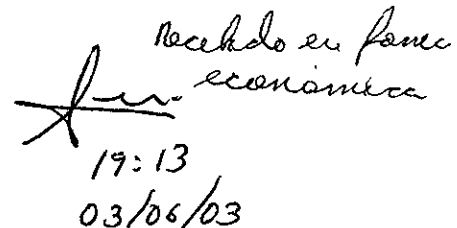 Recibido en
económica
19:13
03/06/03